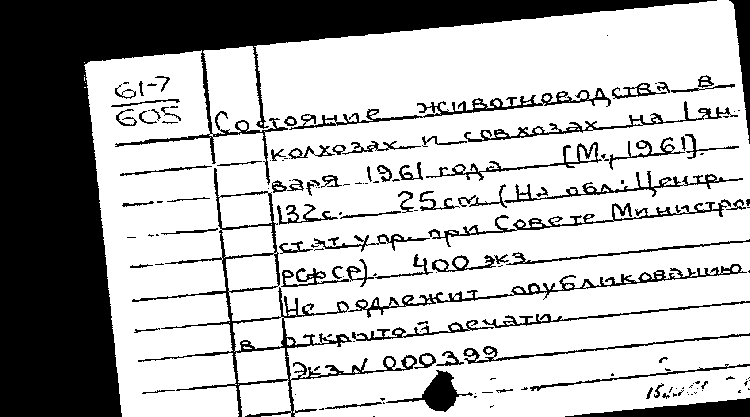 61-7
605
Состояние животноводства в
колхозах и совхозах на 1 ян-
варя 1961 года [М., 1961].
132с. 25см (На обл.: Центр.
стат. упр. при Совете Министров
РСФСР). 400 экз.
Не подлежит опубликованию
в открытой печати.
Экз N 000399